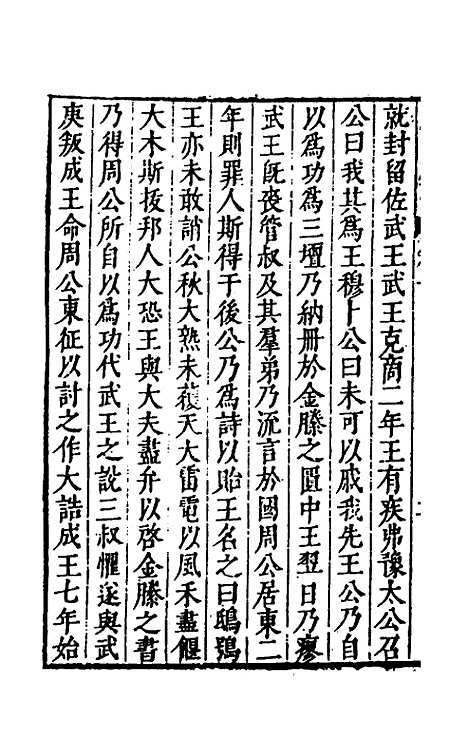 就封留佐武王武王克商二年王有疾弗豫太公召
公曰我其爲王穆卜公曰未可以戚我先王公乃自
以爲功爲三壇乃納册於金縢之匱中王翌日乃瘳
武王旣喪管叔及其羣弟乃流言於國周公居東二
年則罪人斯得于後公乃爲詩以貽王名之曰鴟鴞
王亦未敢誚公秋大熟未穫天大雷電以風禾盡偃
大木斯拔邦人大恐王與大夫盡弁以啓金縢之書
乃得周公所自以爲功代武王之說三叔懼遂與武
庚叛成王命周公東征以討之作大誥成王七年始